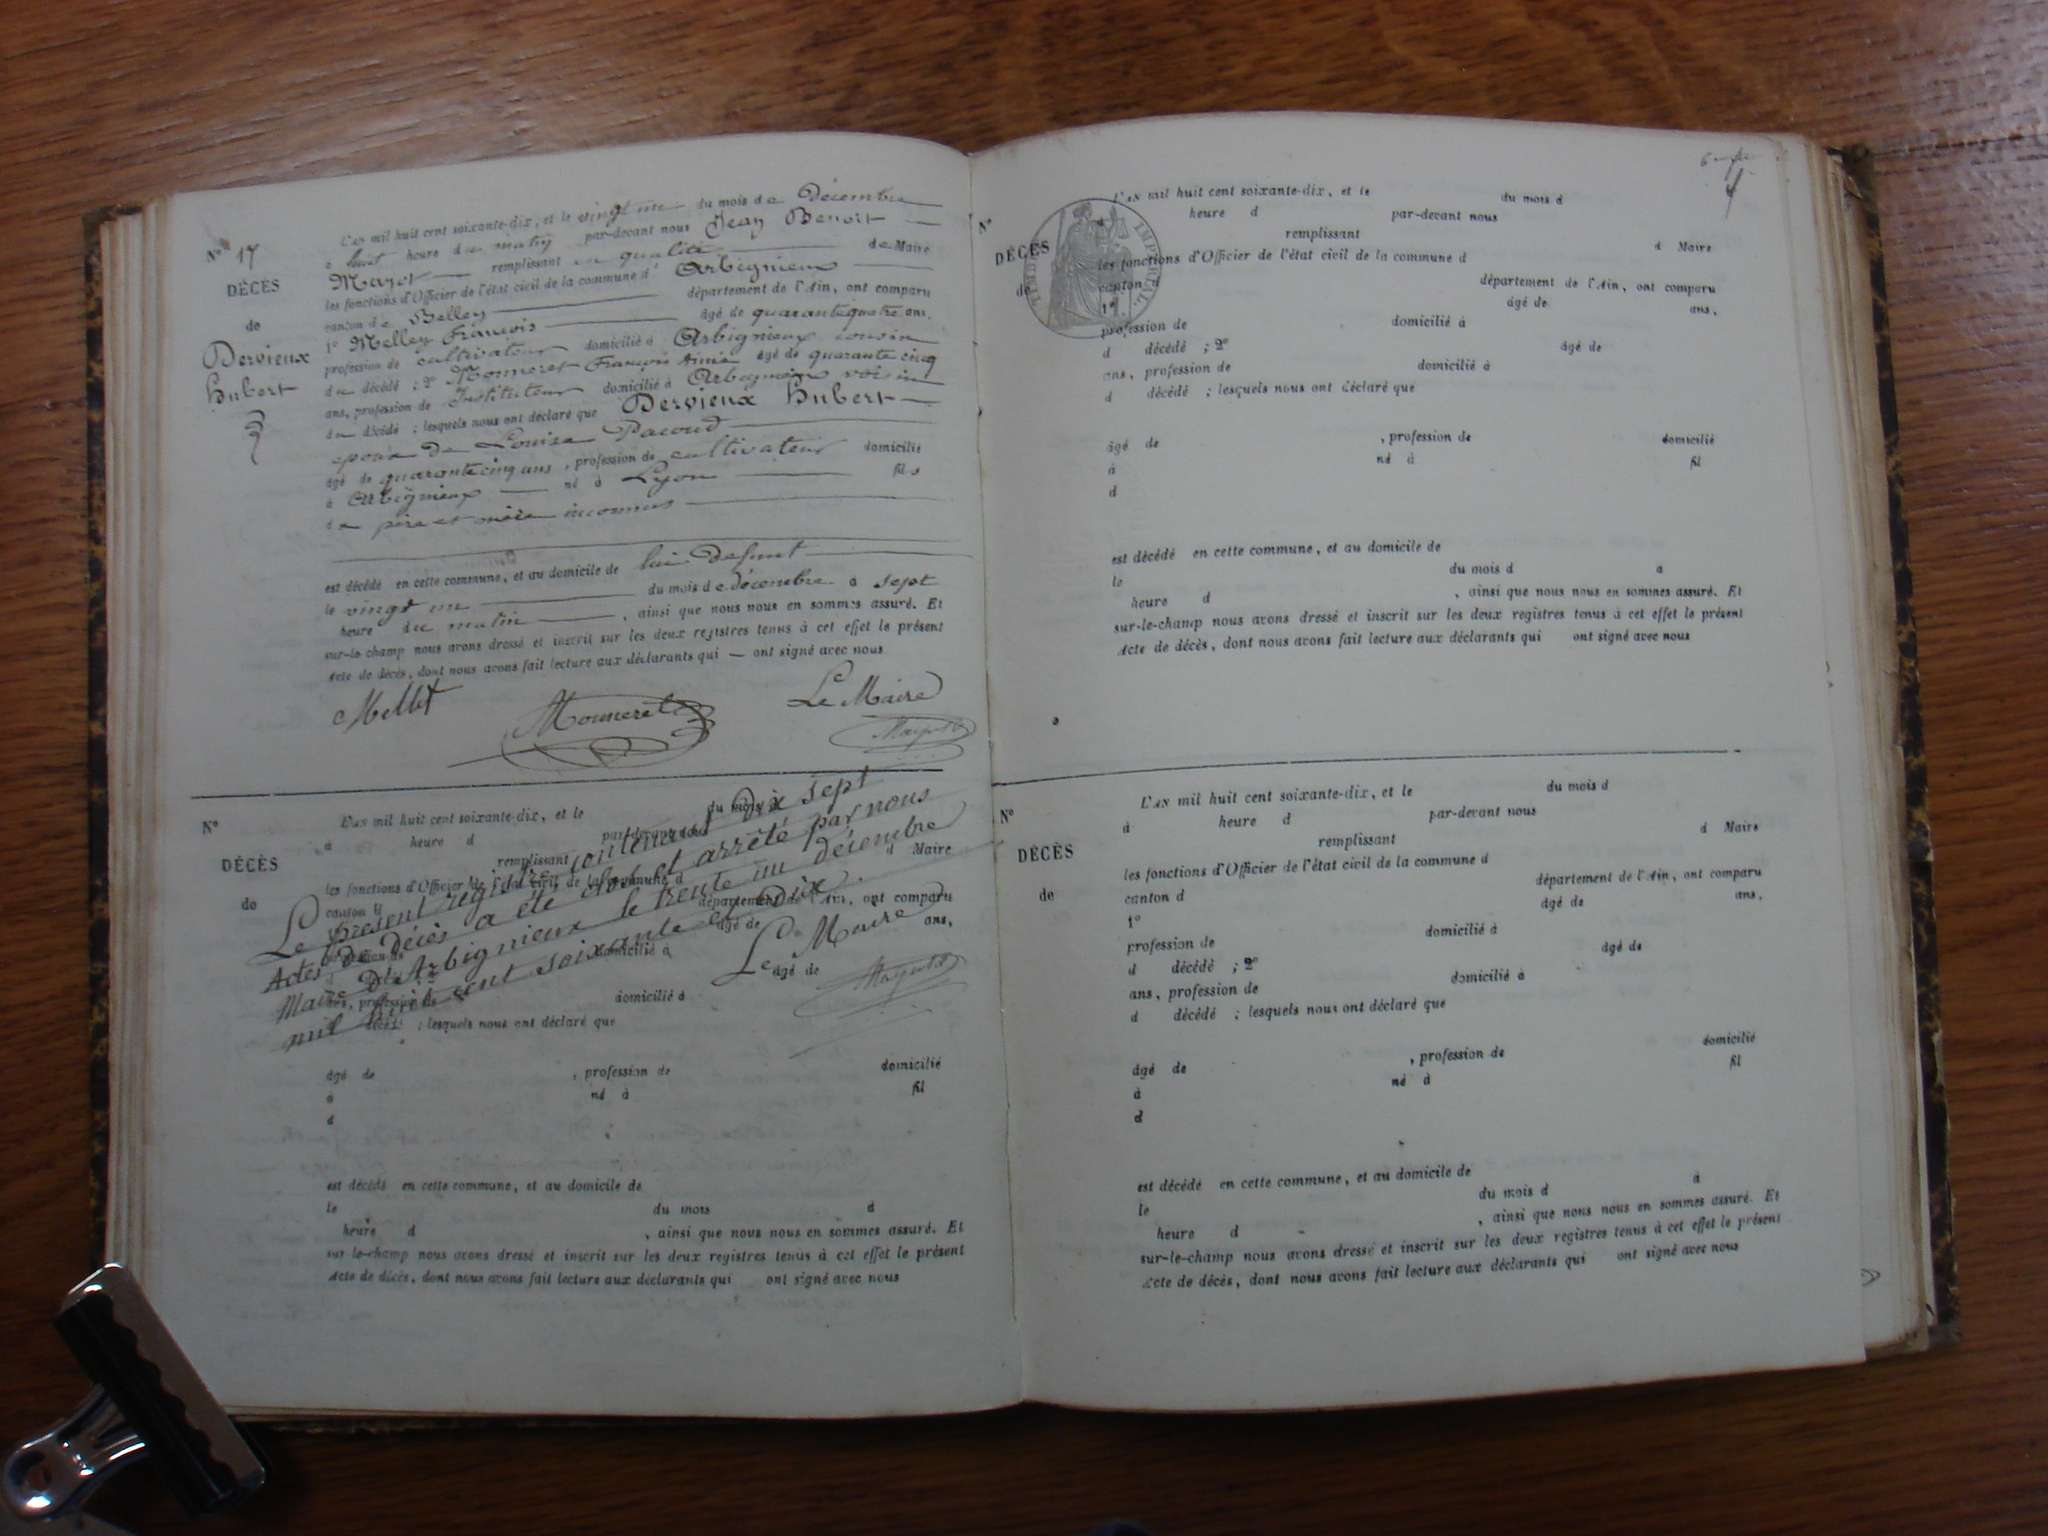 N° 17
DÉCÈS
de
Dervieux
Hubert
L'an mil huit cent soixante-dix, et le vingt un du mois de Décembre
à huit heure du matin par-devant nous Jean Benoit
remplissant en qualité de Maire
les fonctions d'Officier de l'état civil de la commune d' Arbignieux
canton de Belley département de l'Ain, ont comparu
1° Mellet François âgé de quarante quatre ans,
profession de cultivateur domicilié à Arbignieux cousin
du décédé ; 2° Monneret François Aimé âgé de quarante cinq
ans, profession de Instituteur domicilié à Arbignieux voisin
du décédé ; lesquels nous ont déclaré que Dervieux Hubert
époux de Louise Pacoud
âgé de quarante cinq ans, profession de cultivateur domicilié
à Arbignieux né à Lyon fils
de père et mère inconnus
est décédé en cette commune, et au domicile de lui défunt
le vingt un du mois de décembre à sept
heure du matin, ainsi que nous nous en sommes assuré. Et
sur-le-champ nous avons dressé et inscrit sur les deux registres tenus à cet effet le présent
Acte de décès, dont nous avons fait lecture aux déclarants qui — ont signé avec nous
Mellet Monneret Le Maire
N°
DÉCÈS
de
L'an mil huit cent soixante-dix, et le du mois d
à heure d par-devant nous
remplissant d Maire
les fonctions d'Officier de l'état civil de la commune d
canton d département de l'Ain, ont comparu
âgé de ans,
domicilié à
âgé de
ans, profession de domicilié à
décédé ; lesquels nous ont déclaré que
Le présent registre contenant dix sept
Actes de décès a été clos et arrêté par nous
Maire d'Arbignieux le trente un décembre
mil huit cent soixante et dix.
Le Maire
âgé de , profession de domicilié
à né à fil
d
est décédé en cette commune, et au domicile de
le du mois d
heure d , ainsi que nous nous en sommes assuré. Et
sur-le-champ nous avons dressé et inscrit sur les deux registres tenus à cet effet le présent
Acte de décès, dont nous avons fait lecture aux déclarants qui ont signé avec nous
N°
DÉCÈS
de
TIMBRE IMPÉRIAL.
L'an mil huit cent soixante-dix, et le du mois d
à heure d par-devant nous
remplissant d Maire
les fonctions d'Officier de l'état civil de la commune d
canton d département de l'Ain, ont comparu
1° âgé de ans,
profession de domicilié à
d décédé ; 2° âgé de
ans, profession de domicilié à
d décédé ; lesquels nous ont déclaré que
âgé de , profession de domicilié
à né à fil
d
est décédé en cette commune, et au domicile de
le du mois d à
heure d , ainsi que nous nous en sommes assuré. Et
sur-le-champ nous avons dressé et inscrit sur les deux registres tenus à cet effet le présent
Acte de décès, dont nous avons fait lecture aux déclarants qui ont signé avec nous
N°
DÉCÈS
de
L'an mil huit cent soixante-dix, et le du mois d
à heure d par-devant nous
remplissant d Maire
les fonctions d'Officier de l'état civil de la commune d
canton d département de l'Ain, ont comparu
1° âgé de ans,
profession de domicilié à
d décédé ; 2° âgé de
ans, profession de domicilié à
d décédé ; lesquels nous ont déclaré que
âgé de , profession de domicilié
à né à fil
d
est décédé en cette commune, et au domicile de
le du mois d à
heure d , ainsi que nous nous en sommes assuré. Et
sur-le-champ nous avons dressé et inscrit sur les deux registres tenus à cet effet le présent
Acte de décès, dont nous avons fait lecture aux déclarants qui ont signé avec nous